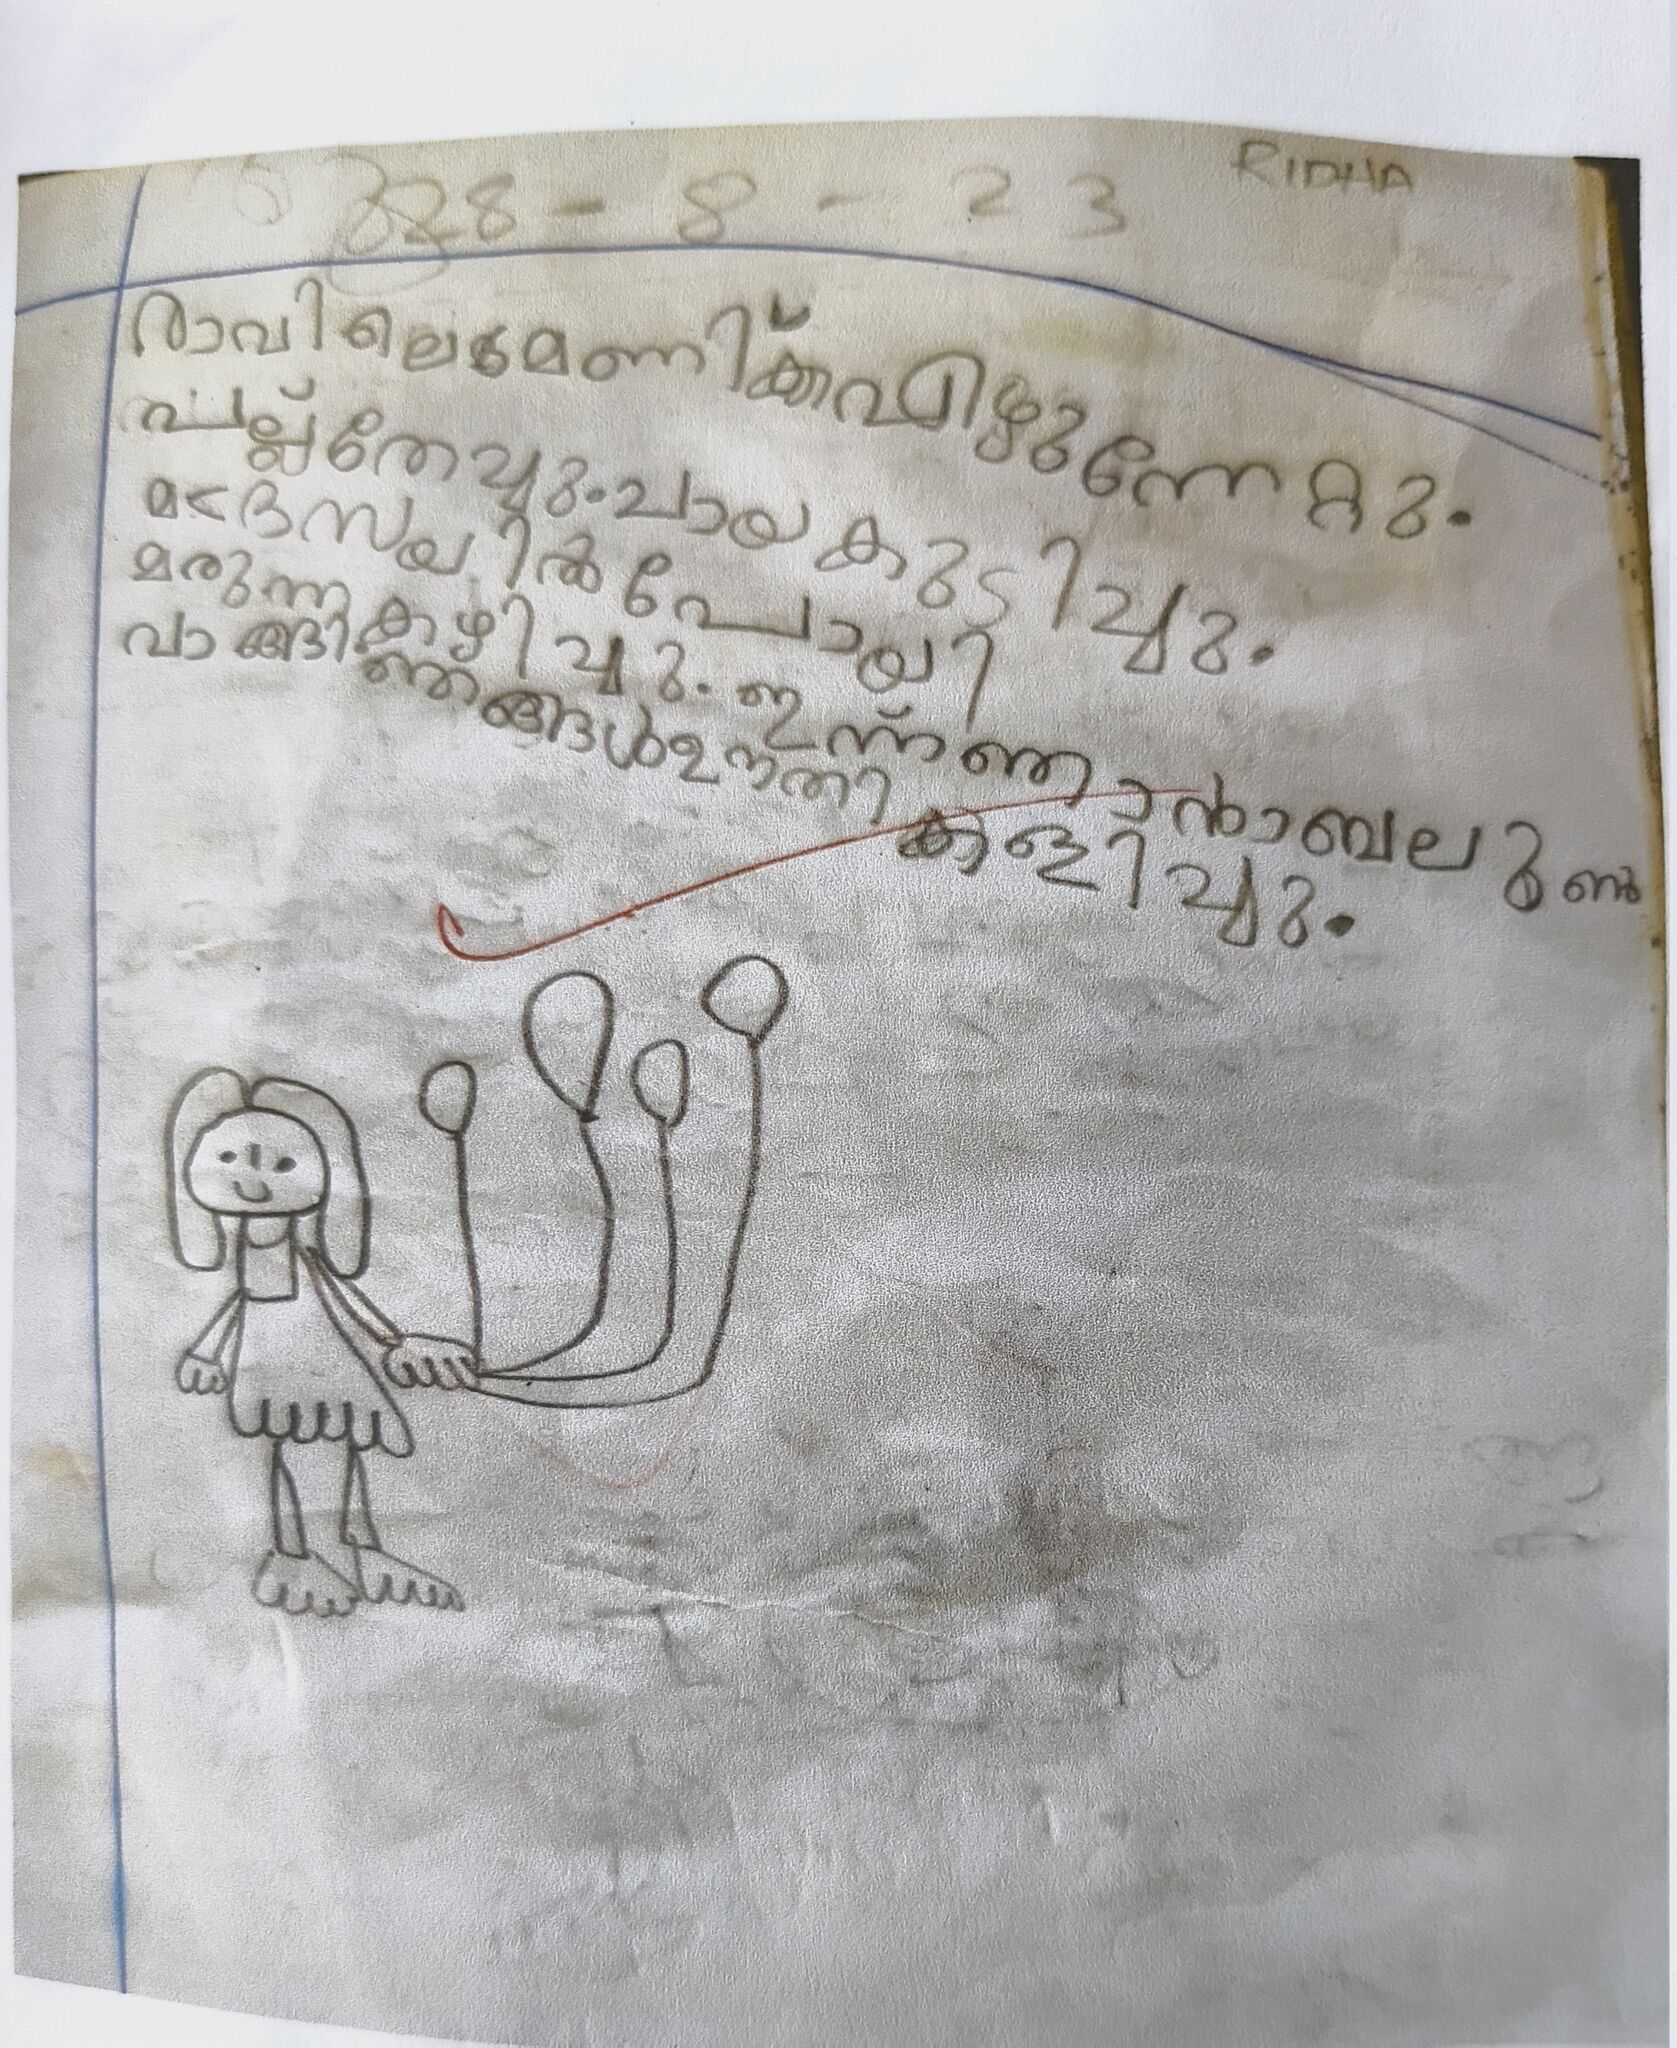 RIDHA
28-8-23
രാവിലെ 6 മണിക്ക് എഴുന്നേറ്റു.
പല്ല്തേച്ചു. ചായ കുടിച്ചു.
മദ്രസയിൽ പോയി
മരുന്ന കഴിച്ചു. ഇന്ന് ഞാൻ ബലൂൺ
വാങ്ങി ഞങ്ങൾ ഊതി കളിച്ചു.